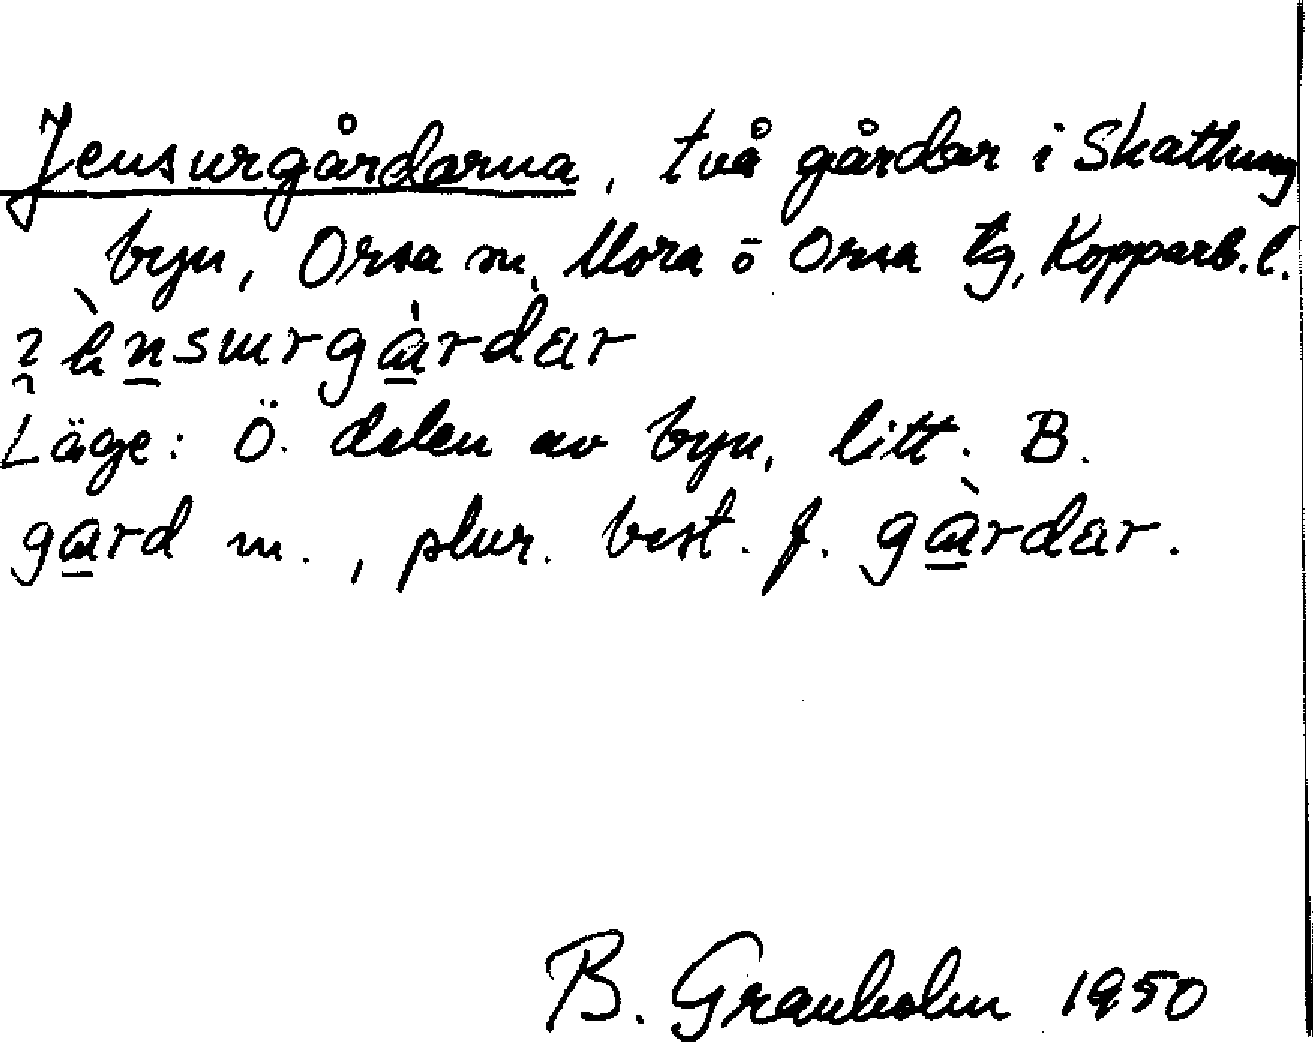 Jensurgårdarna, två gårdar i Skattung
byn, Orsa sn, Mora o Orsa tg, Kopparb. l.
Läge: Ö. delen av byn, litt. B.
gard m., plur. best. f. gàrdar.
B. Granholm 1950